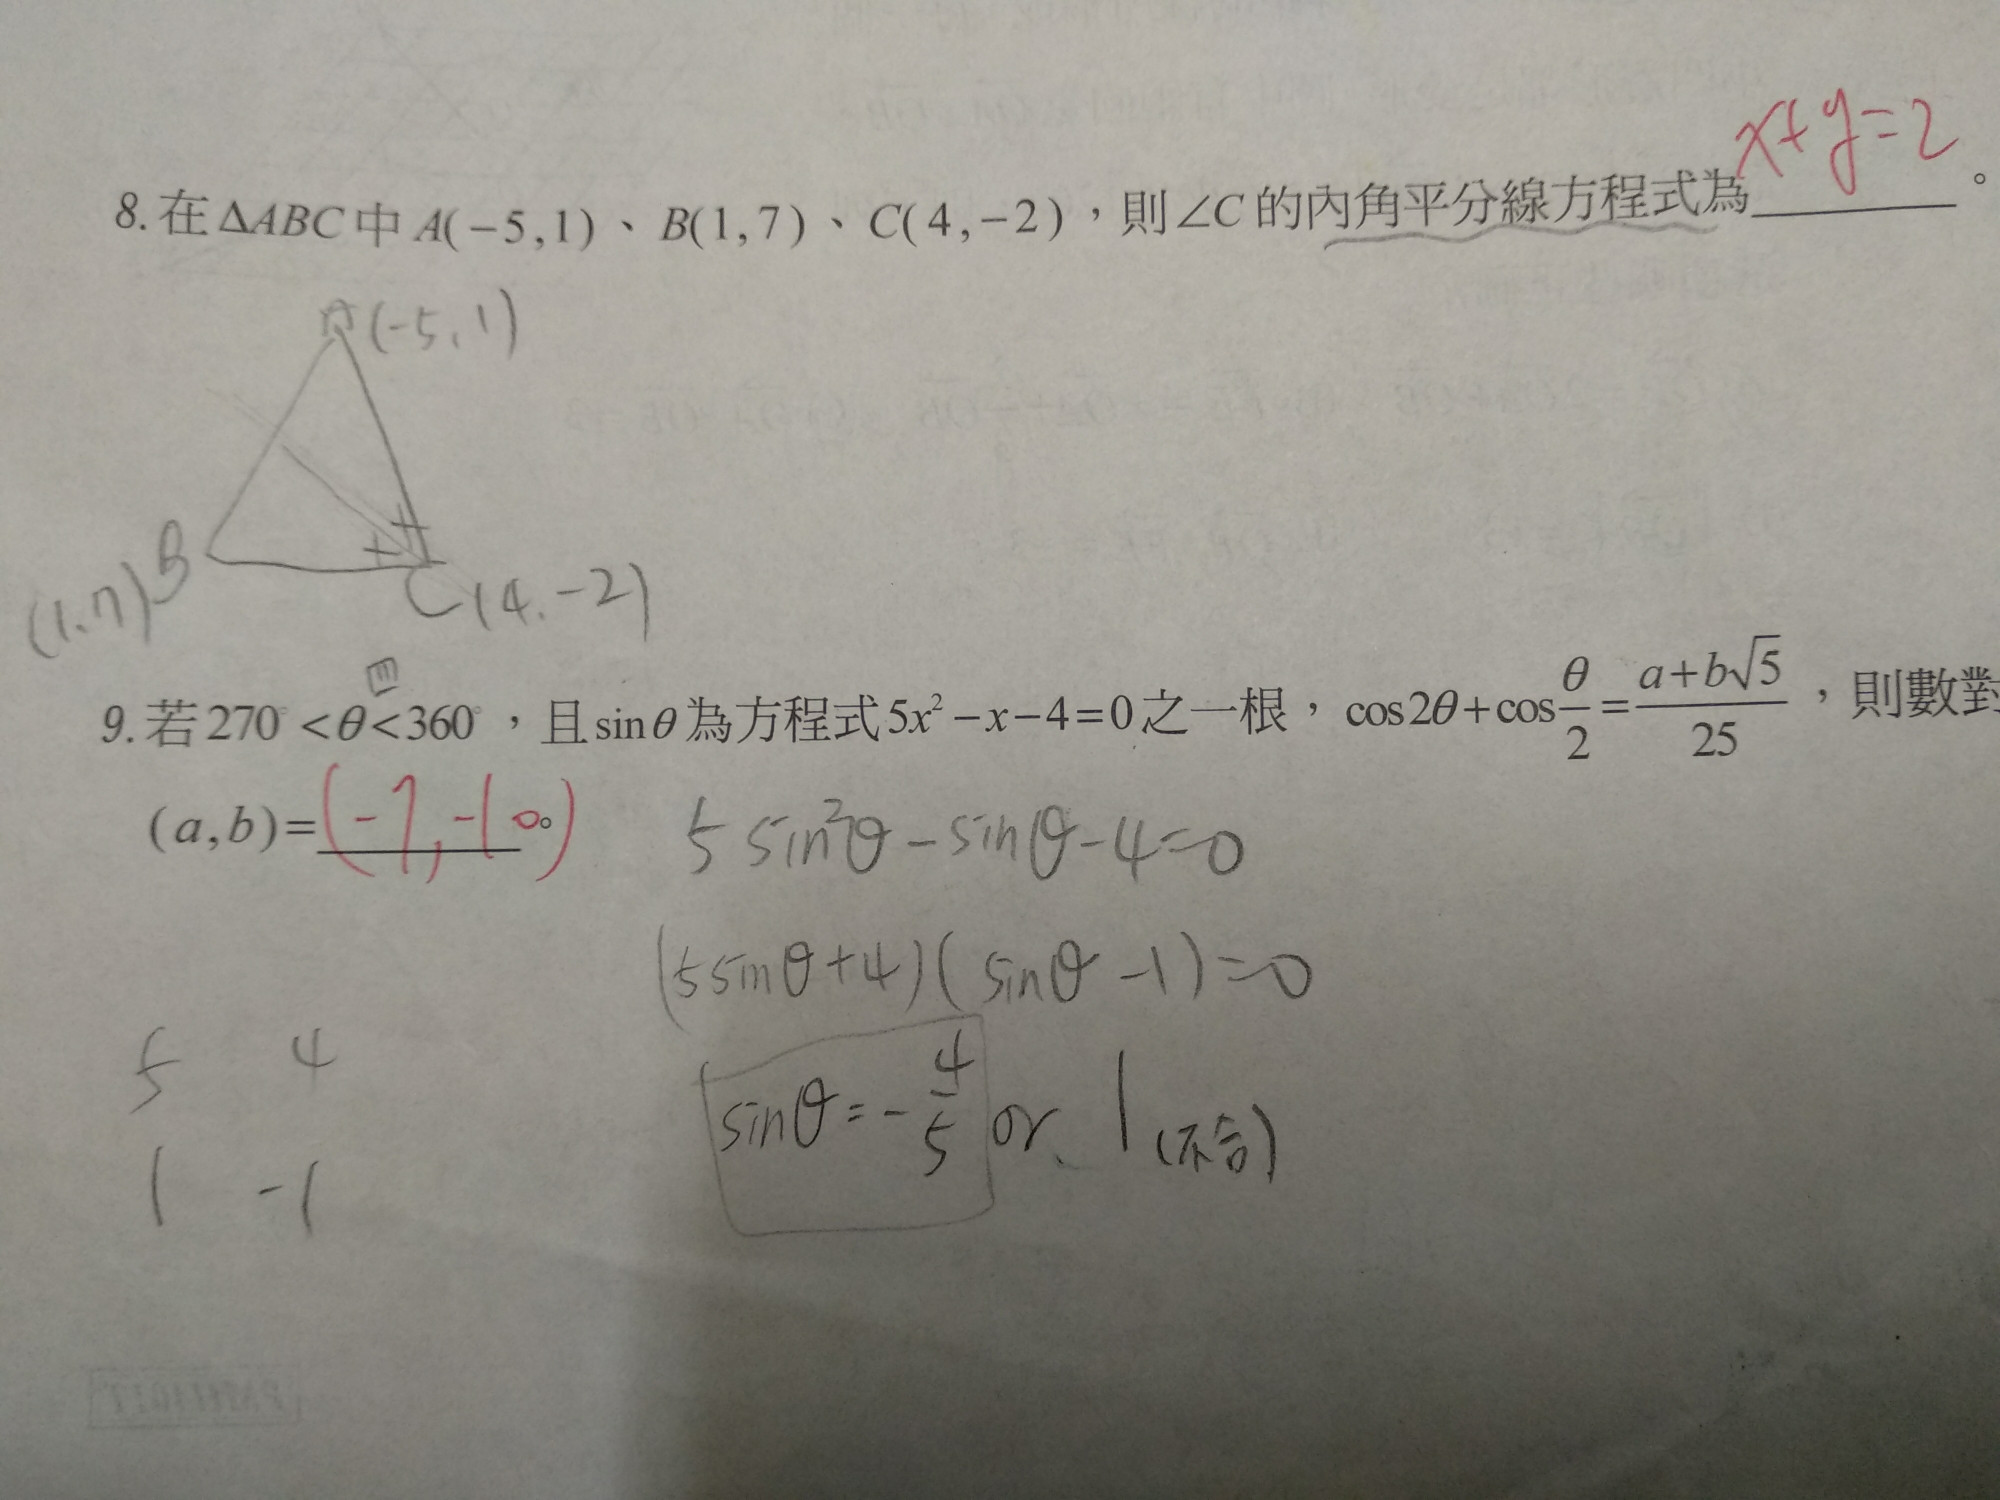 x+y=2
8. 在ΔABC中A(−5,1)、B(1,7)、C(4,−2),則∠C的內角平分線方程式為______。
A(-5,1)
(1,7)B
C(4,-2)
四
9. 若270°<θ<360°,且sinθ為方程式5x²−x−4=0之一根,cos2θ+cos θ/2=(a+b√5)/25,則數對
(a,b)=(-7,-10)。
5 sin²θ-sinθ-4=0
(5sinθ+4)(sinθ-1)=0
5 4
sinθ=-4/5 or 1(不合)
1 -1